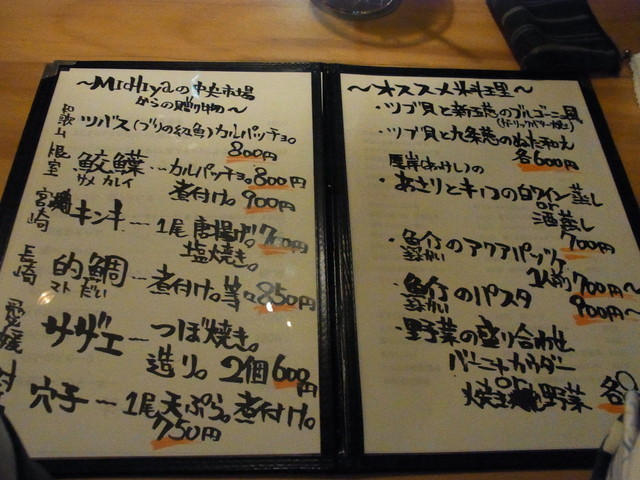 ～Michiyaの中央市場
からの贈り物～
和歌山 ツバス(ブリの幼魚)カルパッチョ。
800円
根室 鮫鰈…カルパッチョ。800円
サメ カレイ 煮付け。900円
宮崎 キンキ…1尾唐揚げ。700円
塩焼き。
長崎 的鯛…煮付け。等々850円
マトだい
愛媛 サザエ…つぼ焼き。
造り。2個600円
対 穴子…1尾天ぷら。煮付け。
750円
～オススメ料理～
・ツブ貝と新玉葱のブルゴーニュ風
(ガーリックバター焼き)
・ツブ貝と九条葱のぬた和え
各600円
厚岸(あっけし)の
・あさりとキノコの白ワイン蒸し
or
酒蒸し
700円
・魚介のアクアパッツァ
1人前700円〜
・魚介のパスタ
900円〜
・野菜の盛り合わせ
バーニャカウダー
or
焼き野菜 各